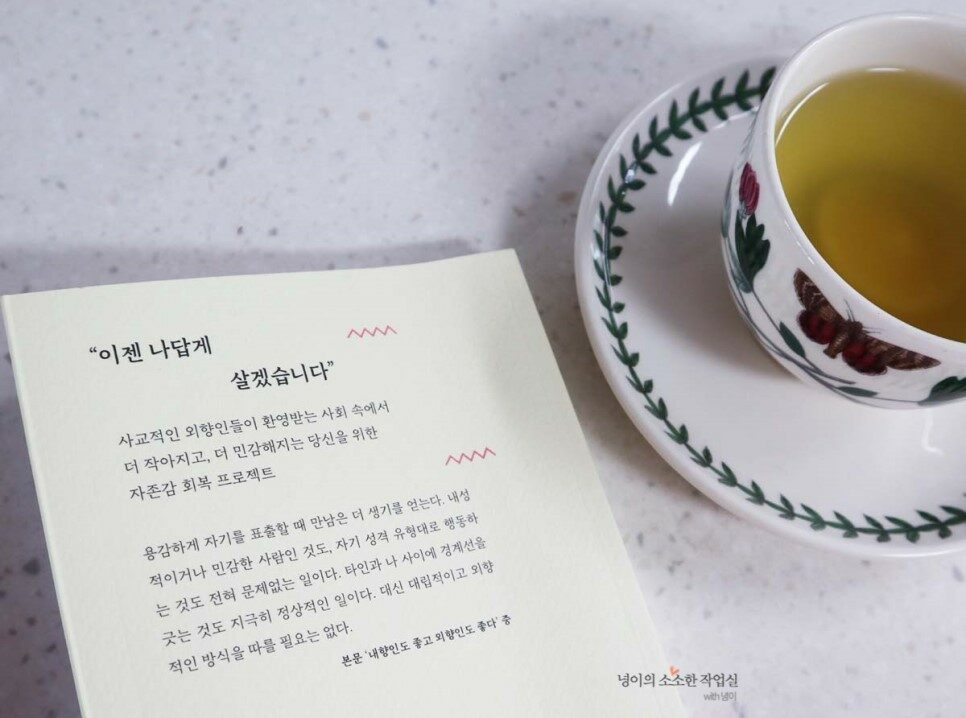 “이젠 나답게
살겠습니다”
사교적인 외향인들이 환영받는 사회 속에서
더 작아지고, 더 민감해지는 당신을 위한
자존감 회복 프로젝트
용감하게 자기를 표출할 때 만남은 더 생기를 얻는다. 내성
적이거나 민감한 사람인 것도, 자기 성격 유형대로 행동하
는 것도 전혀 문제없는 일이다. 타인과 나 사이에 경계선을
긋는 것도 지극히 정상적인 일이다. 대신 대립적이고 외향
적인 방식을 따를 필요는 없다.
본문 ‘내향인도 좋고 외향인도 좋다’ 중
넝이의 소소한 작업실
with 넝이